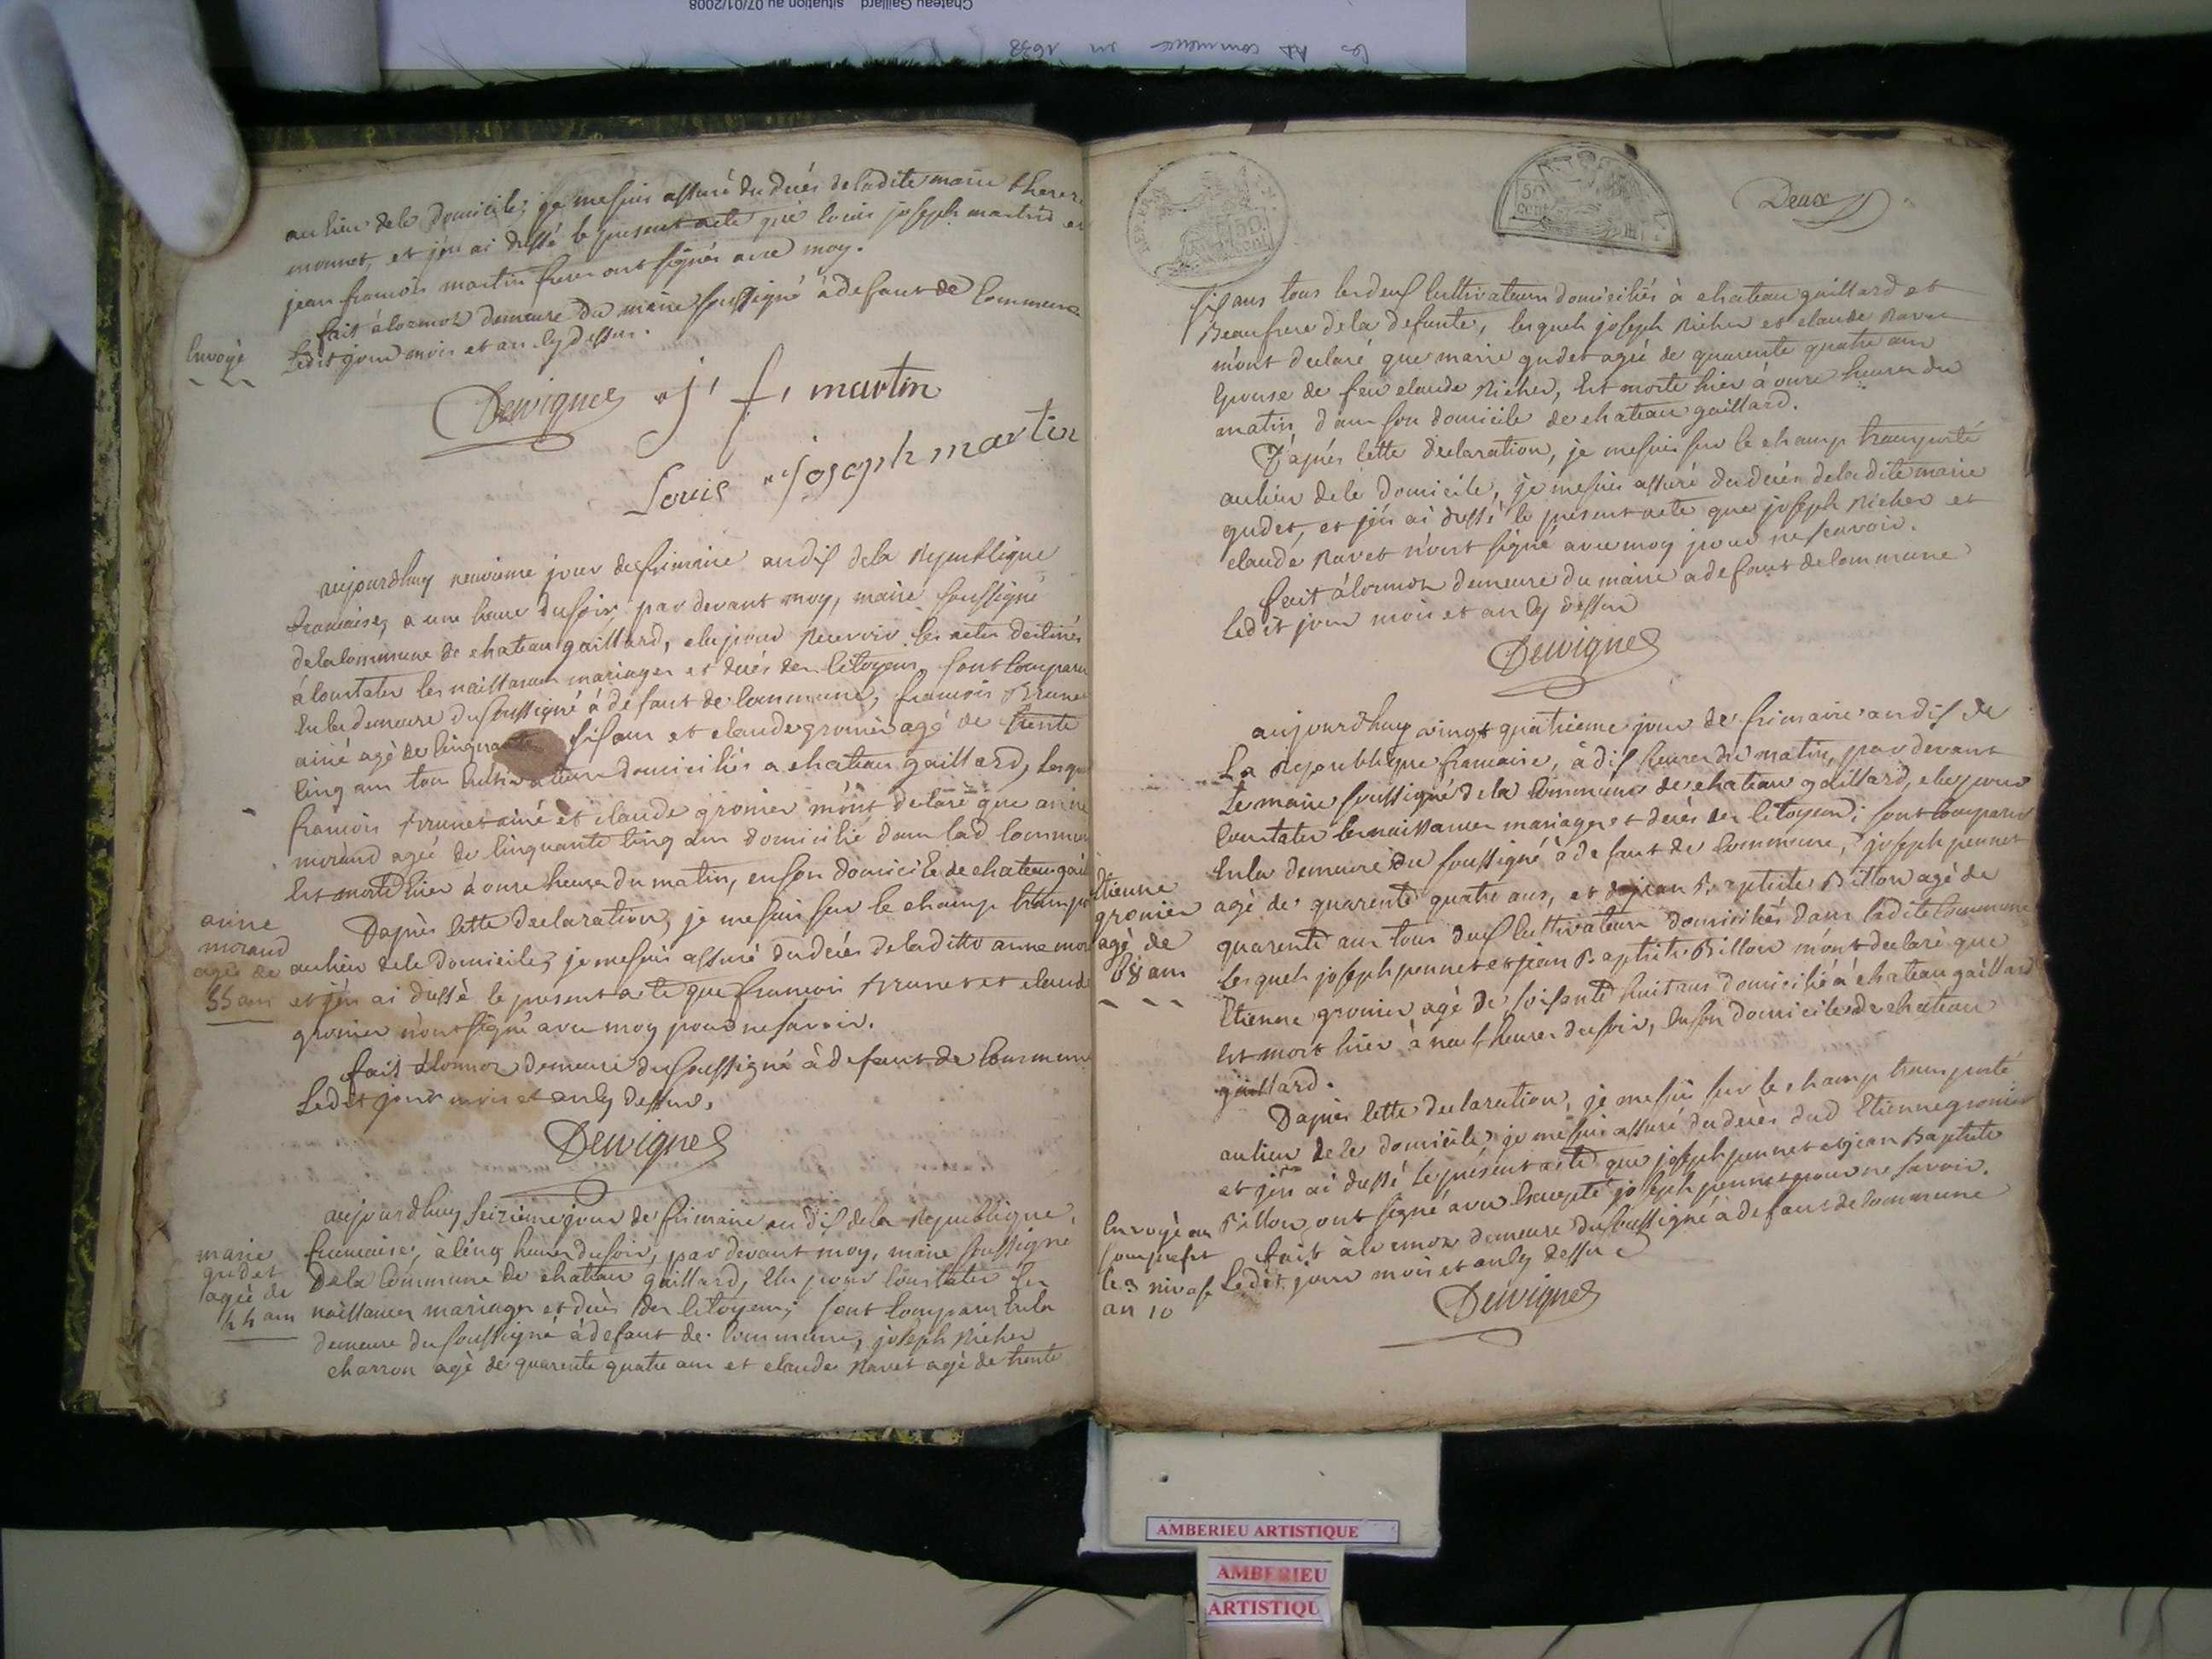 Chateau Gaillard situation au 07/01/2008
commence en 1638
au lieu de le domicile, je me suis assuré du decés de ladite marie therese
monnet, et j'en ai dressé le present acte que louis joseph martin et
jean francois martin freres ont signés avec moy.
fait à lormoz demeure du maire soussigné à defaut de commune
Envoyé
Ledit jour mois et an cy dessus.
Dewignes j. f. martin
Louis Joseph martin
aujourdhuy neuvieme jour de frimaire an dix de la Republique
francaise, a une heure du soir par devant moy, maire soussigné
de la commune de chateau gaillard, elu pour recevoir les actes destinés
à constater les naissances mariages et decés des citoyens, sont comparu
en la demeure du soussigné à defaut de commune, francois Brunet
ainé agé de cinquante six ans et claude gronier agé de trente
cinq ans tous cultivateurs domiciliés a chateau gaillard, lesquels
francois brunet ainé et claude gronier m'ont declaré que anne
morand agée de cinquante cinq ans domicilié dans lad commune
Est morte hier à onze heures du matin, en son domicile de chateau gail
anne
morand
agée de
55 ans
Daprès cette declaration, je me suis sur le champ transporté
au lieu de le domicile, je me suis assuré du decés de laditte anne mor
et j'en ai dressé le present acte que francois brunet et claude
gronier n'ont signé avec moy pour ne savoir.
fait à lormoz demeure du soussigné à defaut de commune
Ledit jour mois et an cy dessus.
Dewignes
aujourdhuy seizieme jour de frimaire an dix de la Republique
marie
gudet
agée de
44 ans
francaise, à cinq heures du soir, par devant moy, maire soussigné
de la commune de chateau gaillard, Elu pour constater les
naissances mariages et decès des citoyens, sont comparu en la
demeure du soussigné à defaut de commune, joseph Richer
charron agé de quarente quatre ans et claude Ravet agé de trente
Deux
REP. FRA. 50 cent
50 cent
six ans tous les deux cultivateurs domiciliés à chateau gaillard et
Beaufrere de la defunte, lesquels joseph Richer et claude Ravet
m'ont declaré que marie gudet agée de quarente quatre ans
Epouse de feu claude Richer, Est morte hier à onze heures du
matin, dans son domicile de chateau gaillard.
D'après cette declaration, je me suis sur le champ transporté
au lieu de le domicile, je me suis assuré du decés de ladite marie
gudet, et j'en ai dressé le present acte que joseph Richer et
claude Ravet n'ont signé avec moy pour ne scavoir.
fait à lormoz demeure du maire a defaut de commune
Ledit jour mois et an cy dessus
Dewignes
aujourdhuy vingt quatrieme jour de frimaire an dix de
La Republique francaise, à dix heures du matin, par devant
Le maire soussigné de la commune de chateau gaillard, elu pour
Constater les naissances mariages et decès des citoyens; sont comparu
En la demeure du soussigné à defaut de commune, joseph pennet
agé de quarente quatre ans, et jean Baptiste Billon agé de
quarente ans tous deux cultivateurs domiciliés dans ladite commune
Lesquels joseph pennet et jean Baptiste Billon m'ont declaré que
Etienne gronier agé de soixante huit ans domicilié à chateau gaillard
Est mort hier à neuf heures du soir, en son domicile de chateau
gaillard.
Etienne
gronier
agé de
68 ans
Daprès cette declaration, je me suis sur le champ transporté
au lieu de le domicile, je me suis assuré du decès dud Etienne gronier
et j'en ai dressé le présent acte que joseph pennet et jean Baptiste
Billon ont signé avec Excepté joseph pennet pour ne savoir.
Envoyé au
souprefet
le 3 nivose
an 10
fait à lormoz demeure du soussigné à defaut de commune
Ledit jour mois et an cy dessus
Dewignes
AMBERIEU ARTISTIQUE
AMBERIEU
ARTISTIQU